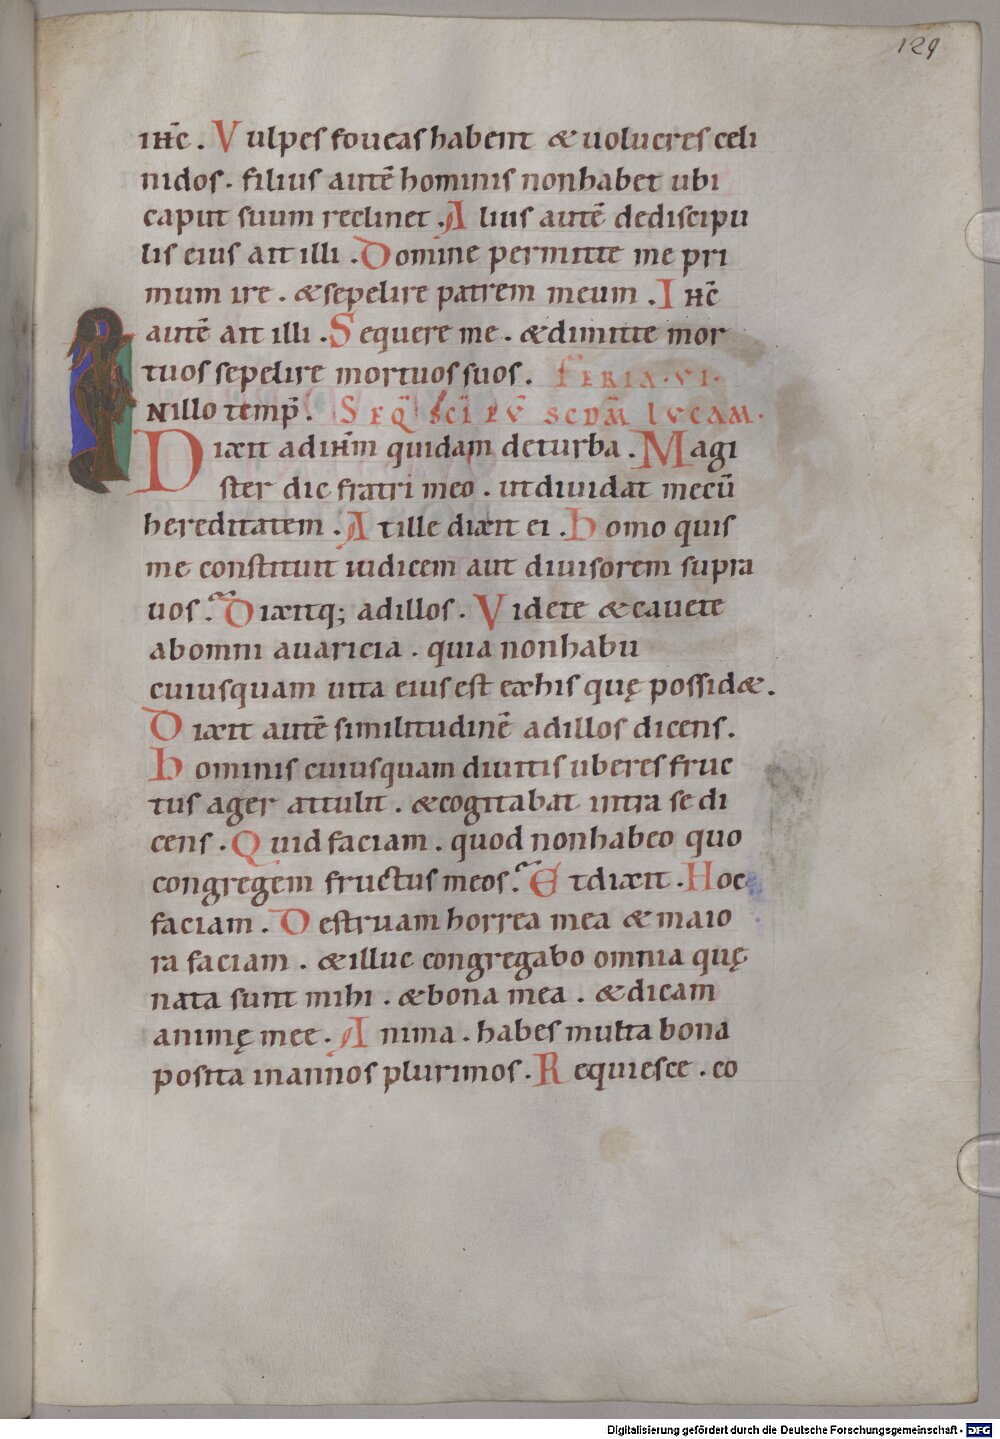 129
ihc̄. Vulpes foueas habent & uolucres celi
nidos. filius autē hominis non habet ubi
caput suum reclinet. Alius autē de discipu
lis eius ait illi. Domine permitte me pri
mum ire. & sepelire patrem meum. Ihc̄
autē ait illi. Sequere me. & dimitte mor
tuos sepelire mortuos suos. FERIA. VI.
IN illo temp̄. SEQ̄ SCI EV̄ SCDM̄ LVCAM.
Dixit ad ihm̄ quidam de turba. Magi
ster dic fratri meo. ut diuidat mecū
hereditatem. At ille dixit ei. Homo quis
me constituit iudicem aut diuisorem supra
uos. Dixitq; ad illos. Videte & cauete
ab omni auaricia. quia non habu
cuiusquam uita eius est ex his quę possid&.
Dixit autē similitudinē ad illos dicens.
Hominis cuiusquam diuitis uberes fruc
tus ager attulit. & cogitabat intra se di
cens. Quid faciam. quod non habeo quo
congregem fructus meos. Et dixit. Hoc
faciam. Destruam horrea mea & maio
ra faciam. & illuc congregabo omnia quę
nata sunt mihi. & bona mea. & dicam
animę mee. Anima. habes multa bona
posita in annos plurimos. Requiesce. co
Digitalisierung gefördert durch die Deutsche Forschungsgemeinschaft - DFG